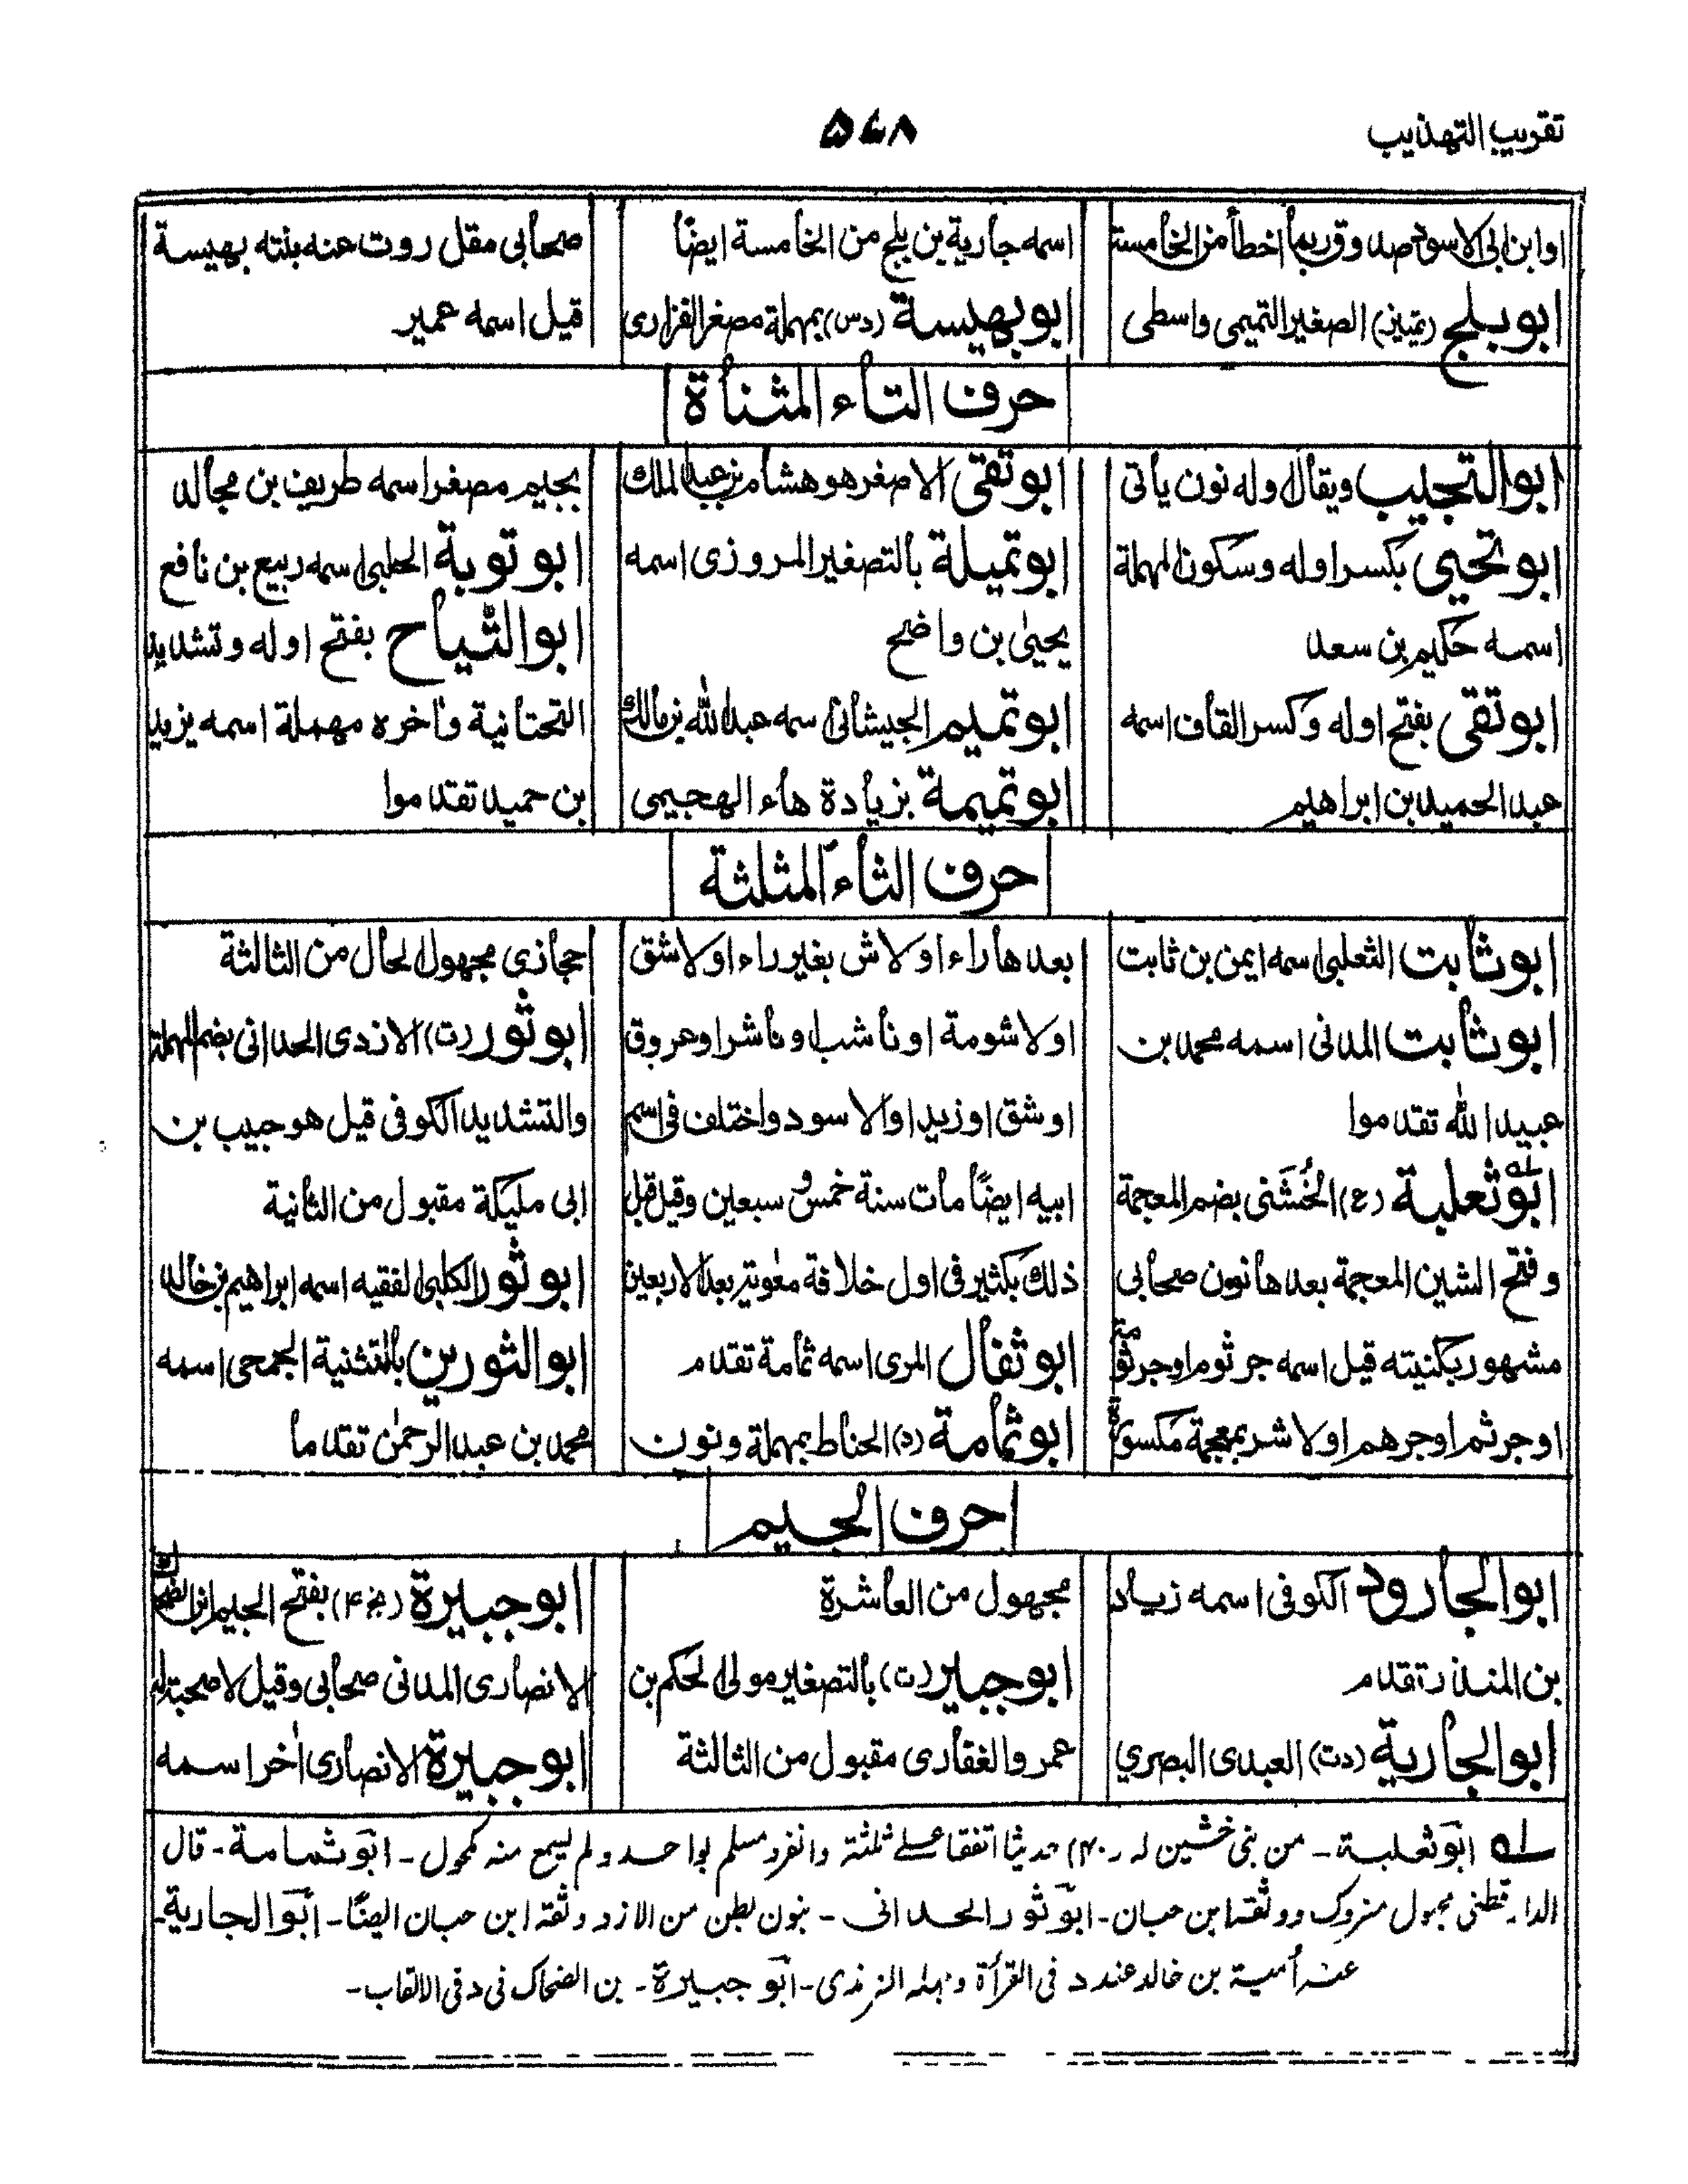 تقريب التهذيب
٥٤٨
اوابن ابى الاسود صدوق ربما اخطأ من الخامسة
ابو بلج (تمييز) الصغير التميمى واسطى
اسمه جارية بن بلج من الخامسة ايضًا
ابو بهيسة (دس) بمهملة مصغر الفزارى
صحابى مقل روت عنه بنته بهيسة
قيل اسمه عمير
حرف التاء المثناة
ابو التجيب ويقال اوله نون يأتى
ابو تحيى بكسر اوله وسكون المهملة
اسمه حكيم بن سعد
ابو تقى بفتح اوله وكسر القاف اسمه
عبد الحميد بن ابراهيم
ابو تقى الاصغر هو هشام بن عبد الملك
ابو تميلة بالتصغير المروزى اسمه
يحيى بن واضح
ابو تميم الجيشانى اسمه عبد الله بن مالك
ابو تميمة بزيادة هاء الهجيمى
بجيم مصغر اسمه طريف بن مجالد
ابو توبة الحلبى اسمه ربيع بن نافع
ابو التياح بفتح اوله وتشديد
التحتانية واٰخره مهملة اسمه يزيد
بن حميد تقدموا
حرف الثاء المثلثة
ابو ثابت الثعلبى اسمه ايمن بن ثابت
ابو ثابت المدنى اسمه محمد بن
عبيد الله تقدموا
ابو ثعلبة (ع) الخُشَنى بضم المعجمة
وفتح الشين المعجمة بعدها نون صحابى
مشهور بكنيته قيل اسمه جرثوم اوجرثومة
اوجرثم اوجرهم اولاشر بمعجمة مكسورة
بعدها راء اولاش بغير راء اولاشق
اولاشومة اوناشب اوناشر اوعروق
اوشق اوزيد اوالاسود واختلف فى اسم
ابيه ايضًا مات سنة خمس وسبعين وقيل قبل
ذلك بكثير فى اول خلافة معٰوية بعد الاربعين
ابو ثفال المرى اسمه ثمامة تقدم
ابو ثمامة (د) الحناط بمهملة ونون
حجازى مجهول الحال من الثالثة
ابو ثور (ت) الازدى الحدانى بضم المهملة
والتشديد الكوفى قيل هو حبيب بن
ابى مليكة مقبول من الثانية
ابو ثور الكلبى الفقيه اسمه ابراهيم بن خالد
ابو الثورين بالتثنية الجمحى اسمه
محمد بن عبد الرحمٰن تقدما
حرف الجيم
ابو الجارود الكوفى اسمه زياد
بن المنذر تقدم
ابو الجارية (دت) العبدى البصري
مجهول من العاشرة
ابو جبير (ت) بالتصغير مولى الحكم بن
عمرو الغفارى مقبول من الثالثة
ابو جبيرة (بخ ٤) بفتح الجيم ابن الضحاك
الانصارى المدنى صحابى وقيل لا صحبة له
ابو جبيرة الانصارى اٰخر اسمه
له ابو ثعلبة - من بنى خشين له (٤٠) حديثا اتفقا على ثلثة وانفرد مسلم بواحد ولم يسمع منه مكحول - ابو ثمامة - قال
الدارقطنى مجهول متروك ووثقه ابن حبان - ابو ثور الحدانى - بنون بطن من الازد وثقه ابن حبان ايضًا - ابو الجارية -
عنه أمية بن خالد عند د فى القرأة وجهله الترمذى - ابو جبيرة - بن الضحاك فى د فى الالقاب -